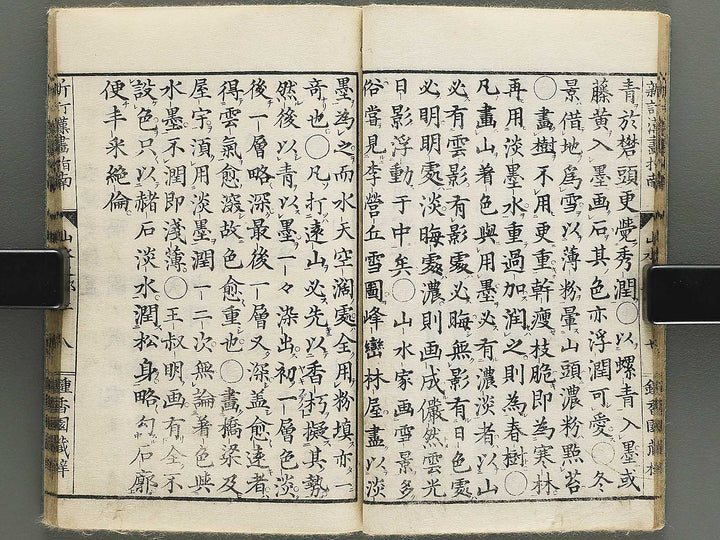 青於礬頭更覺秀潤〇以螺青入墨或
藤黄入墨画石其色亦浮潤可愛〇冬
景借地爲雪以薄粉暈山頭濃粉㸃苔
〇畫樹不用更重幹瘦枝脆即為寒林
再用淡墨水重過加润之則為春樹〇
凡畫山着色與用墨必有濃淡者以山
必有雲影有影處必晦無影有日色處
必明明處淡晦處濃則画成儼然雲光
日影浮動于中矣〇山水家画雪景多
俗嘗見李營丘雪圖峰巒林屋盡以淡
墨為之而水天空濶處全用粉填亦一
奇也〇凡打遠山必先以香朽擬其勢
然後以青以墨一々染出初一層色淡
後一層略深最後一層又深盖愈逺者
得雲氣愈深故色愈重也〇畫橋梁及
屋宇湏用淡墨潤一二次無論着色與
水墨不潤即淺薄〇王叔明画有全不
設色只以赭石淡水潤松身略勾石廓
便丰采絶倫
山水
八
種香園藏梓